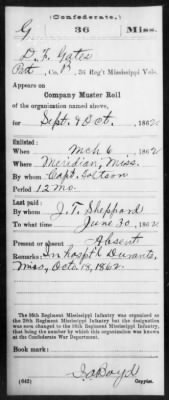 (Confederate.)
G 36 Miss.
D. F. Gates
Pvt, Co. , 36 Reg't Mississippi Vols.
Appears on
Company Muster Roll
of the organization named above,
for Sept. & Oct., 1862
Enlisted:
When Mch 6, 1862
Where Meridian, Miss.
By whom Capt.
Period 12 Mo.
Last paid:
By whom J. T. Sheppard
To what time June 30, 1862
Present or absent Absent
Remarks: In hospt'l Durant,
Miss, Octo. 18, 1862.
The 36th Regiment Mississippi Infantry was organized as
the Regiment Mississippi Infantry but the designation
was changed to the 36th Regiment Mississippi Infantry, that
being the number by which this organization was known at
the Confederate War Department.
Book mark:
Boyd
(642) Copyist.